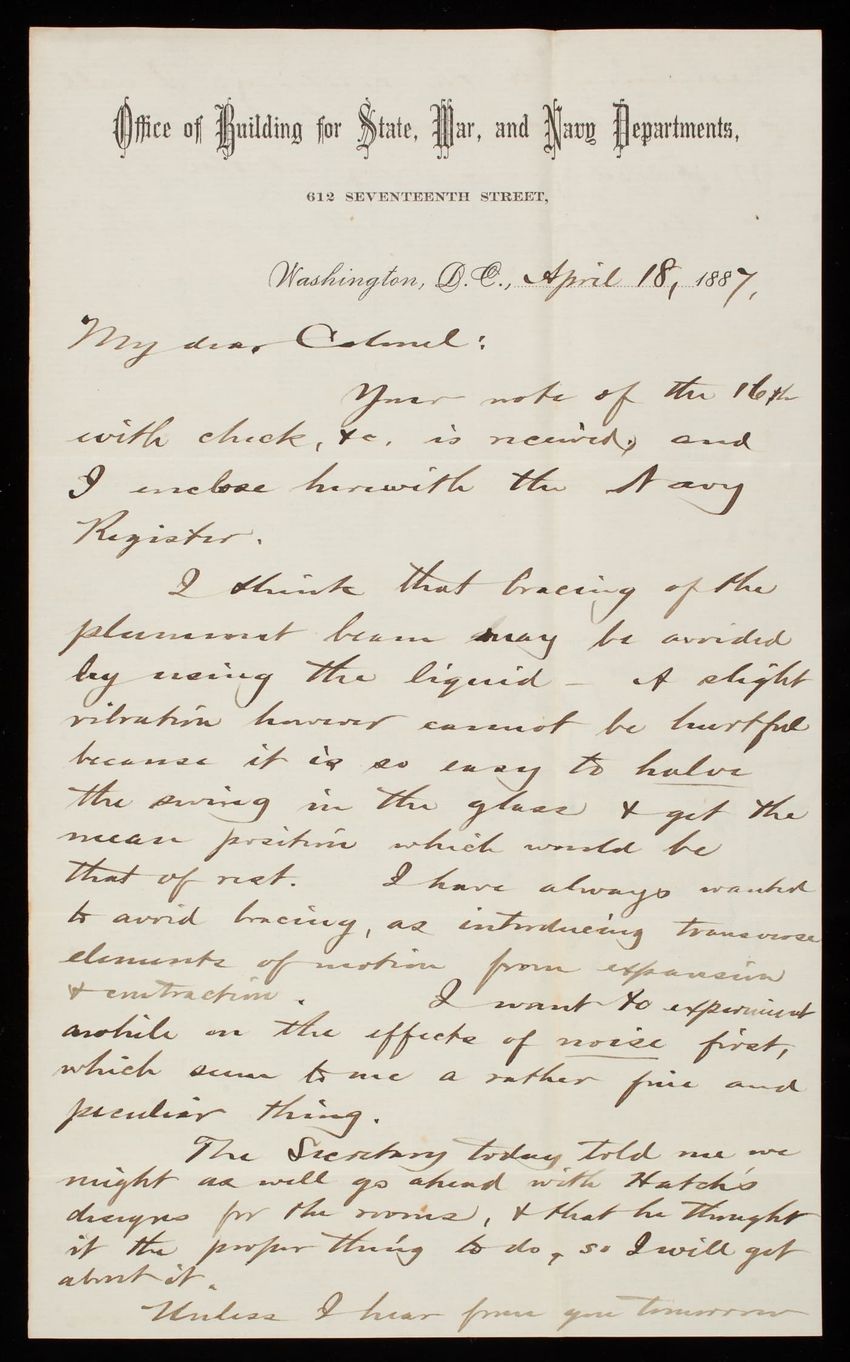 Office of Building for State, War, and Navy Departments,
612 SEVENTEENTH STREET,
Washington, D.C., April 18, 1887,
My dear Colonel:
Your note of the 16th
with check, &c. is received, and
I enclose herewith the Navy
Register.
I think that bracing of the
plummet beam may be avoided
by using the liquid – A slight
vibration however cannot be hurtful
because it is so easy to halve
the swing in the glass & get the
mean position which would be
that of rest. I have always wanted
to avoid bracing, as introducing transverse
elements of motion from expansion
& contraction. I want to experiment
awhile on the effects of noise first,
which seem to me a rather fine and
peculiar thing.
The Secretary today told me we
might as well go ahead with Hatch's
designs for the rooms, & that he thought
it the proper thing to do, so I will get
about it.
Unless I hear from you tomorrow